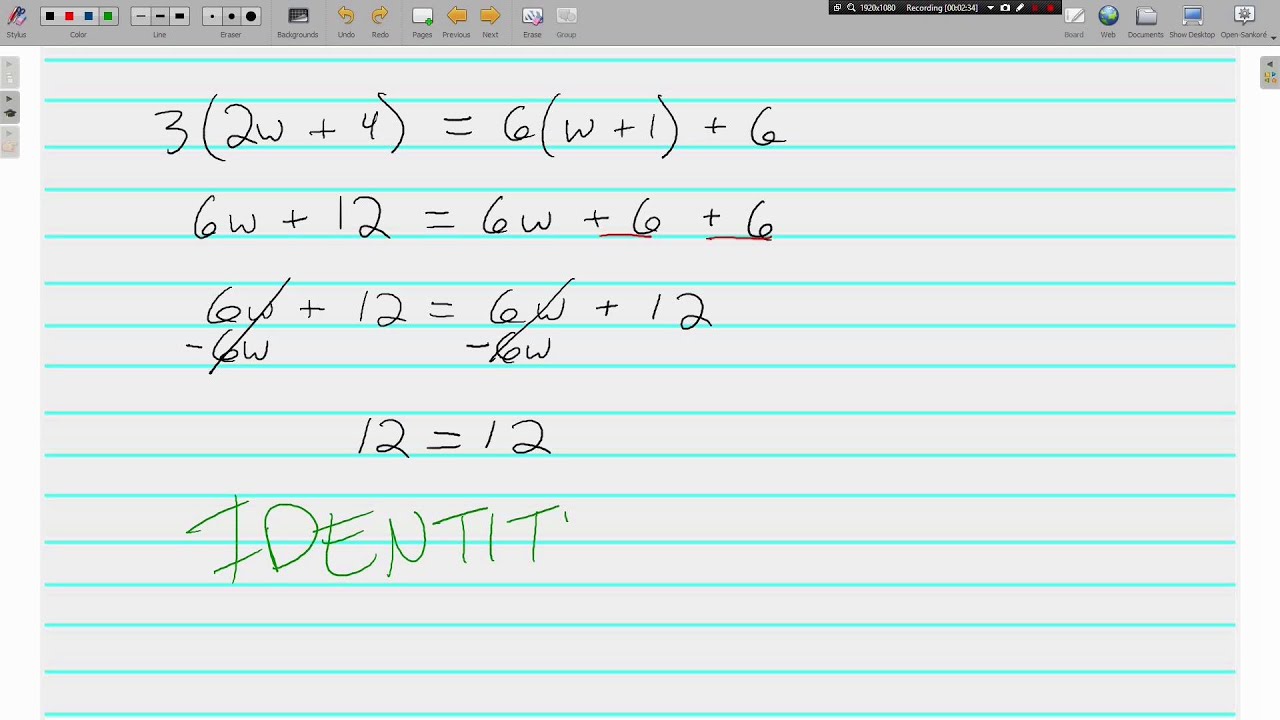 1920x1080 Recording [00:02:34]
Stylus Color Line Eraser Backgrounds Undo Redo Pages Previous Next Erase Group Board Web Documents Show Desktop Open-Sankoré
3(2w + 4) = 6(w + 1) + 6
6w + 12 = 6w + 6 + 6
6w + 12 = 6w + 12
-6w -6w
12 = 12
IDENTIT